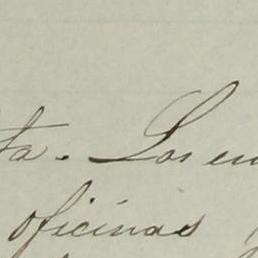 ta. Los en
oficinas